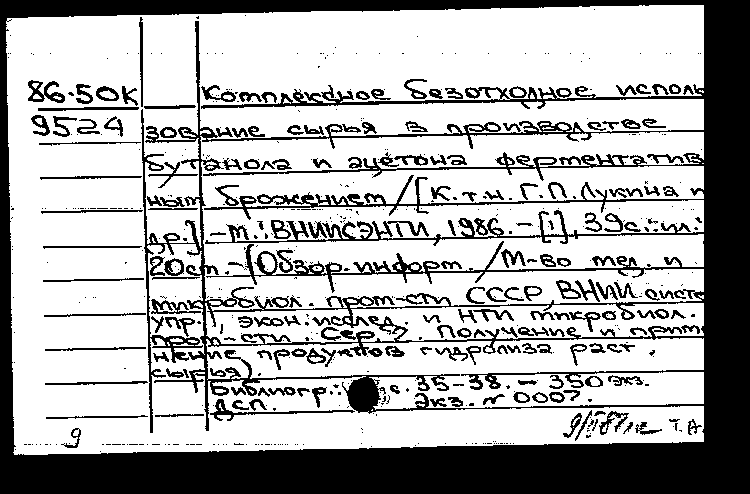 86-50К Комплексное безотходное исполь
9524 зование сырья в производстве
бутанола и ацетона ферментатив
ным брожением / [К.т.н. Г.П. Лукина и
др.] -М.: ВНИИСЭНТИ, 1986. - [1], 39с.: ил.;
20см. - (Обзор. информ. / М-во мед. и
микробиол. пром-сти СССР, ВНИИ систе
упр., экон. исслед. и НТИ микробиол.
пром-сти. Сер. 7. Получение и приме
нение продуктов гидролиза раст.
сырья).
Библиогр.: с. 35-38. - 350 экз.
ДСП. Экз. № 0007.
9 Т.А.